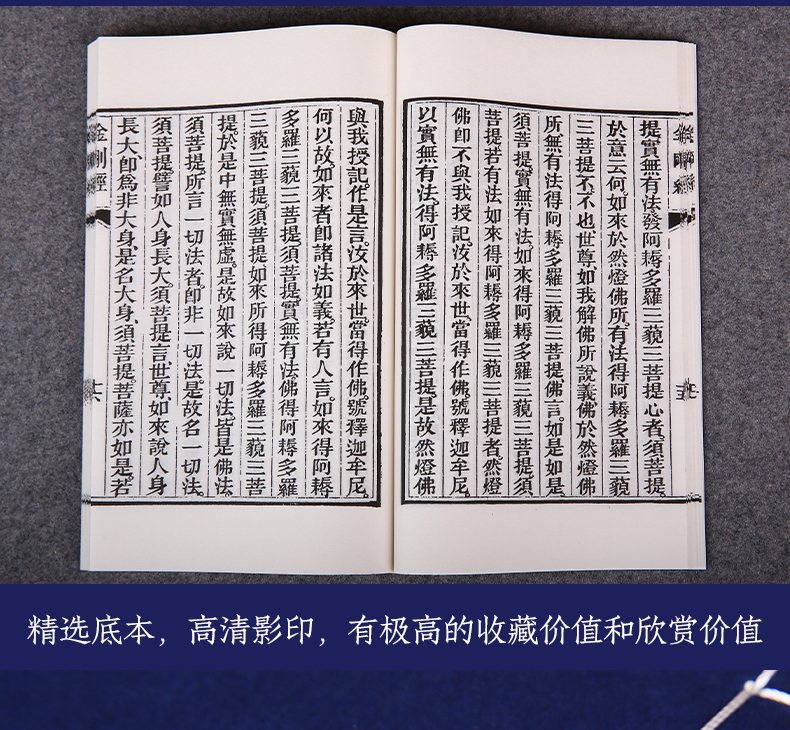 提。實無有法發阿耨多羅三藐三菩提心者。須菩提。
於意云何如來於然燈佛所。有法得阿耨多羅三藐
三菩提不。不也。世尊如我解佛所說義佛於然燈佛
所。無有法得阿耨多羅三藐三菩提佛言。如是如是。
須菩提。實無有法。如來得阿耨多羅三藐三菩提須
菩提若有法如來得阿耨多羅三藐三菩提者。然燈
佛卽不與我授記。汝於來世。當得作佛。號釋迦牟尼。
以實無有法。得阿耨多羅三藐三菩提。是故然燈佛
與我授記。作是言。汝於來世。當得作佛。號釋迦牟尼。
何以故如來者卽諸法如義。若有人言。如來得阿耨
多羅三藐三菩提。須菩提。實無有法。佛得阿耨多羅
三藐三菩提。須菩提如來所得阿耨多羅三藐三菩
提於是中無實無虛是故如來說一切法。皆是佛法。
須菩提。所言一切法者。卽非一切法。是故名一切法。
須菩提。譬如人身長大。須菩提言世尊。如來說人身
長大。卽爲非大身。是名大身。須菩提。菩薩亦如是。若
金剛經
十六
精选底本，高清影印，有极高的收藏价值和欣赏价值